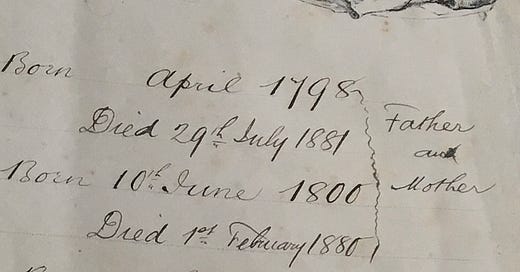 Born April 1798
Died 29th July 1881
Father
and
Mother
Born 10th June 1800
Died 1st February 1880